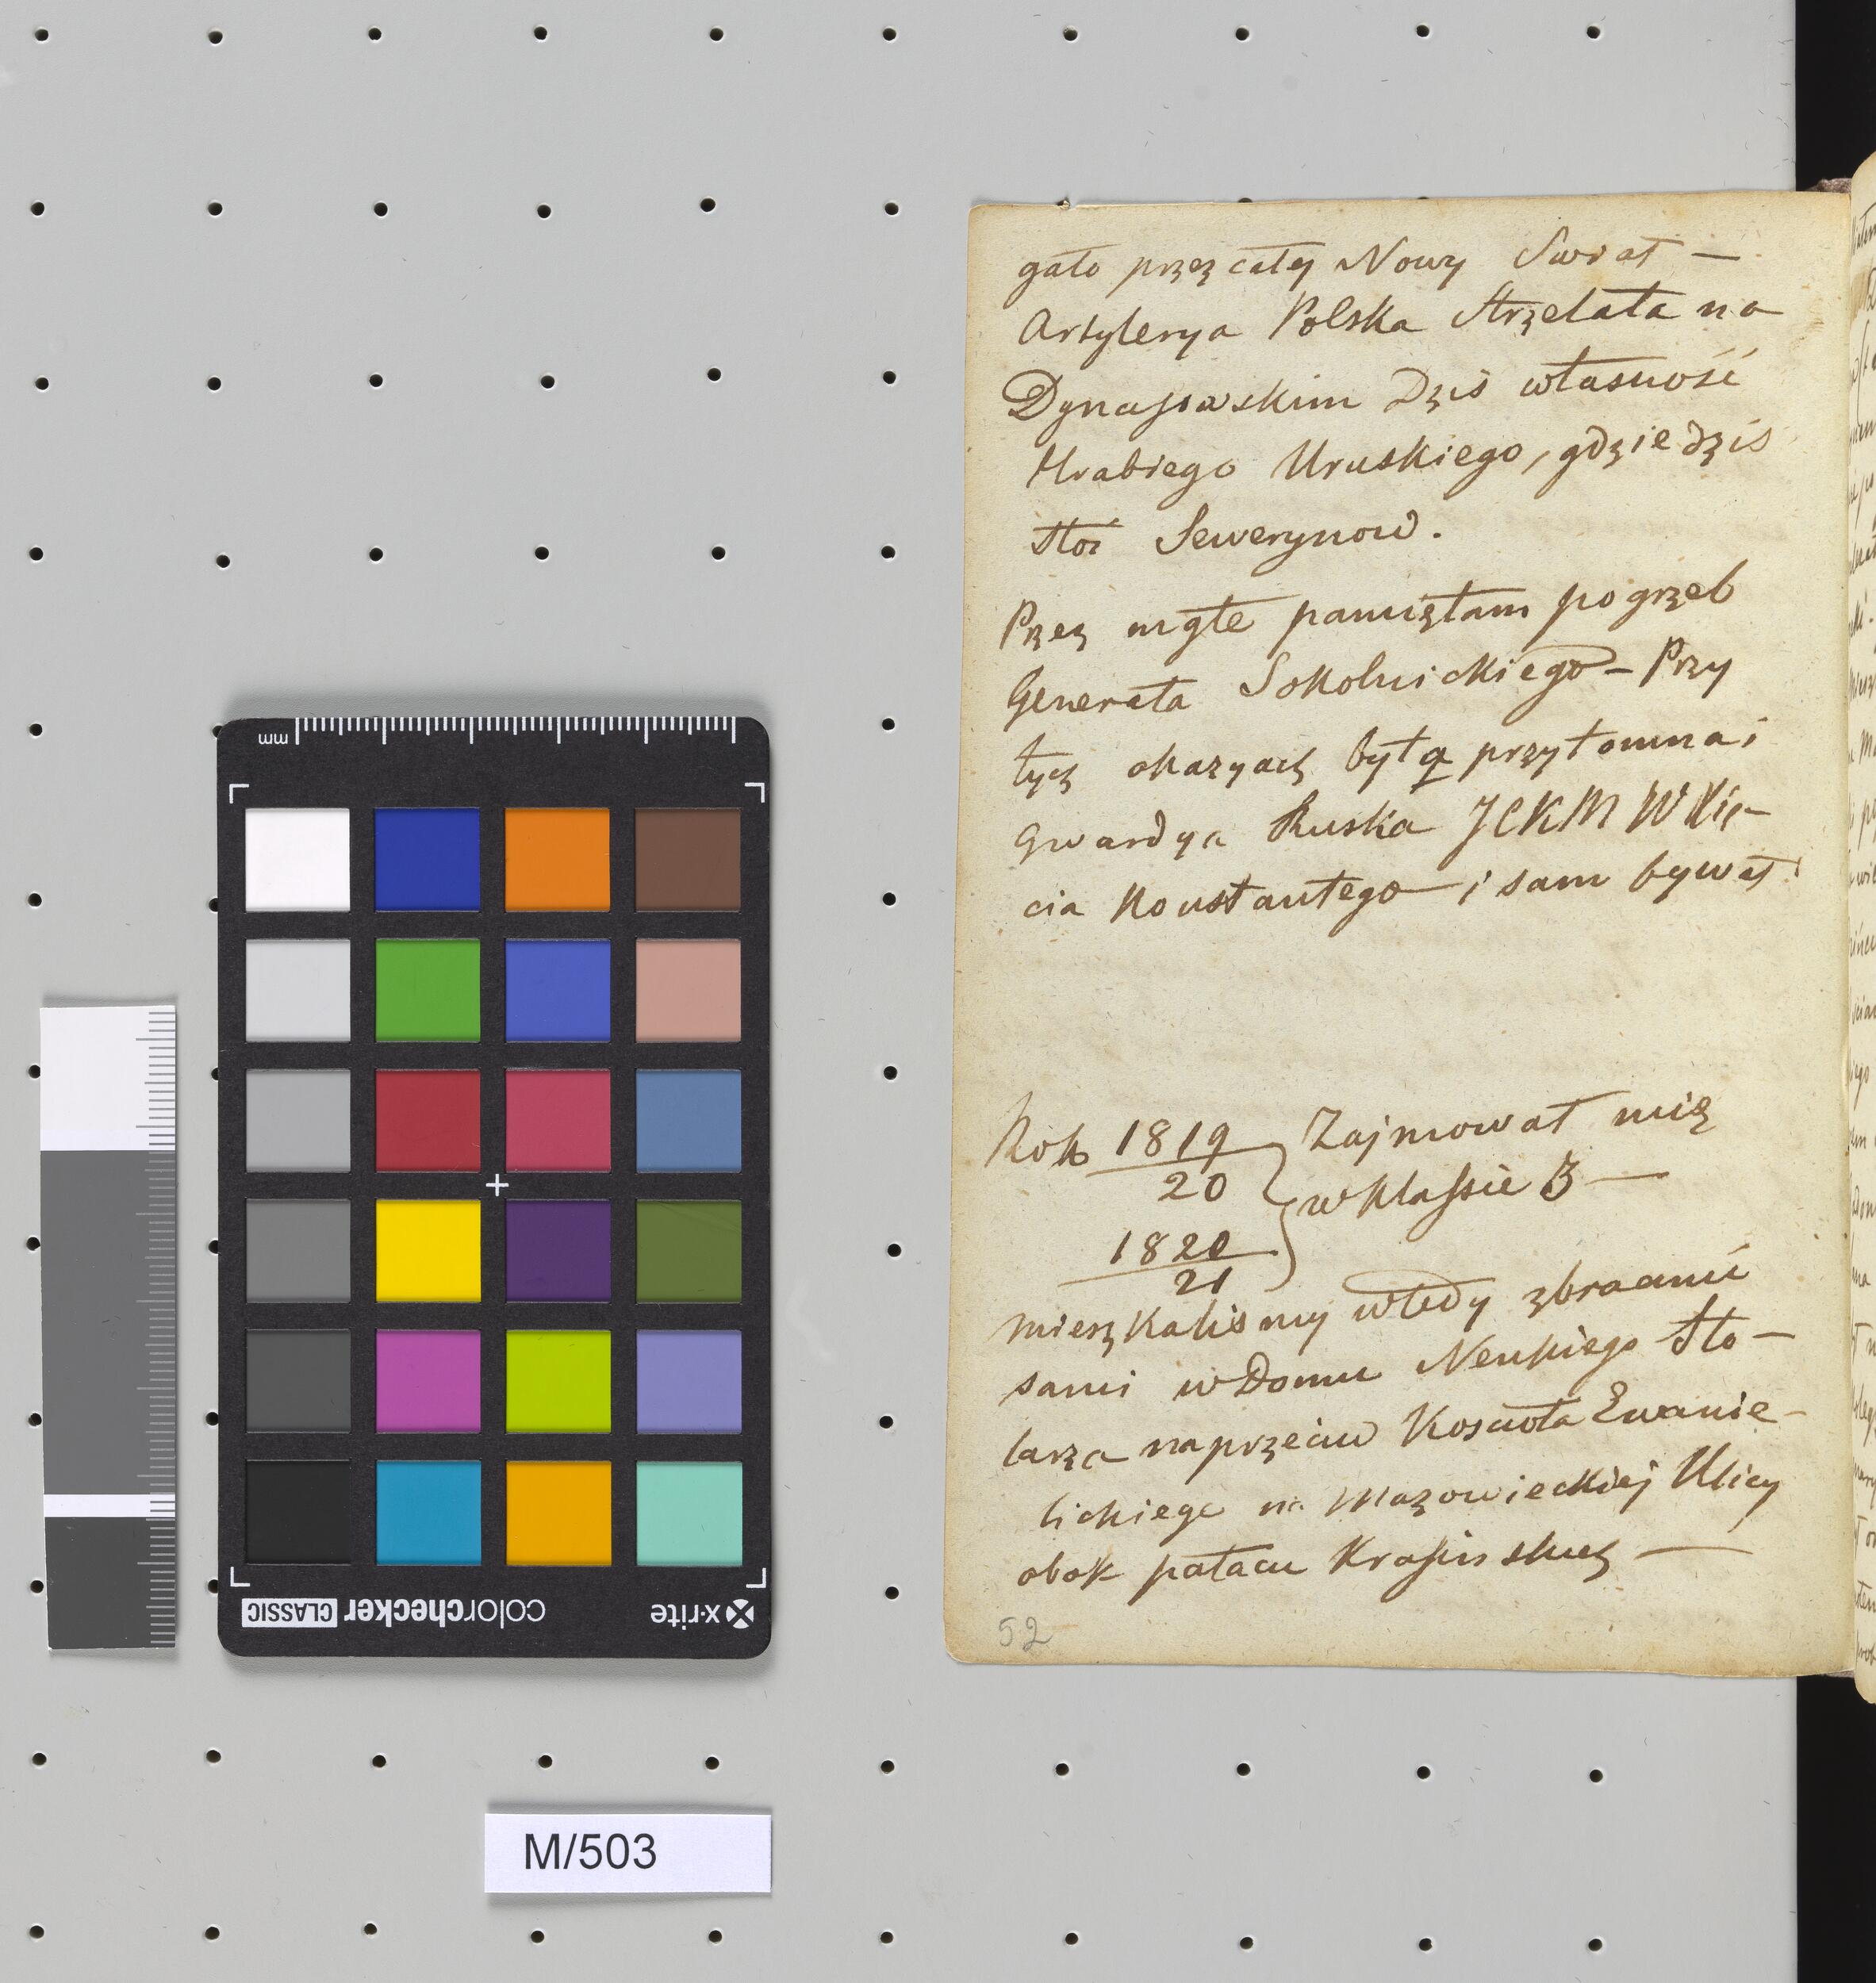 gało przez cały Nowy Swiat —
Artylerya Polska Strzelała na
Dynassowskim Dziś własność
Hrabiego Uruskiego, gdzie dziś
stoi Sewerynow.
Przez mgłe pamiętam pogrzeb
Generała Sokolnickiego — Przy
tych okazyach była przytomna i
Gwardya Ruska JCKM W Xię-
cia Konstantego — i sam bywał
Rok 1819 Zajmował mię
20 w Klassie 3 —
1820
21
mieszkalismy wtedy z braćmi
sami w Domu Neukiego Sto-
larza naprzeciw Koscioła Ewanie-
lickiego na Mazowieckiej Ulicy
obok pałacu Krasinskich —
52
mm
x·rite colorchecker CLASSIC
M/503